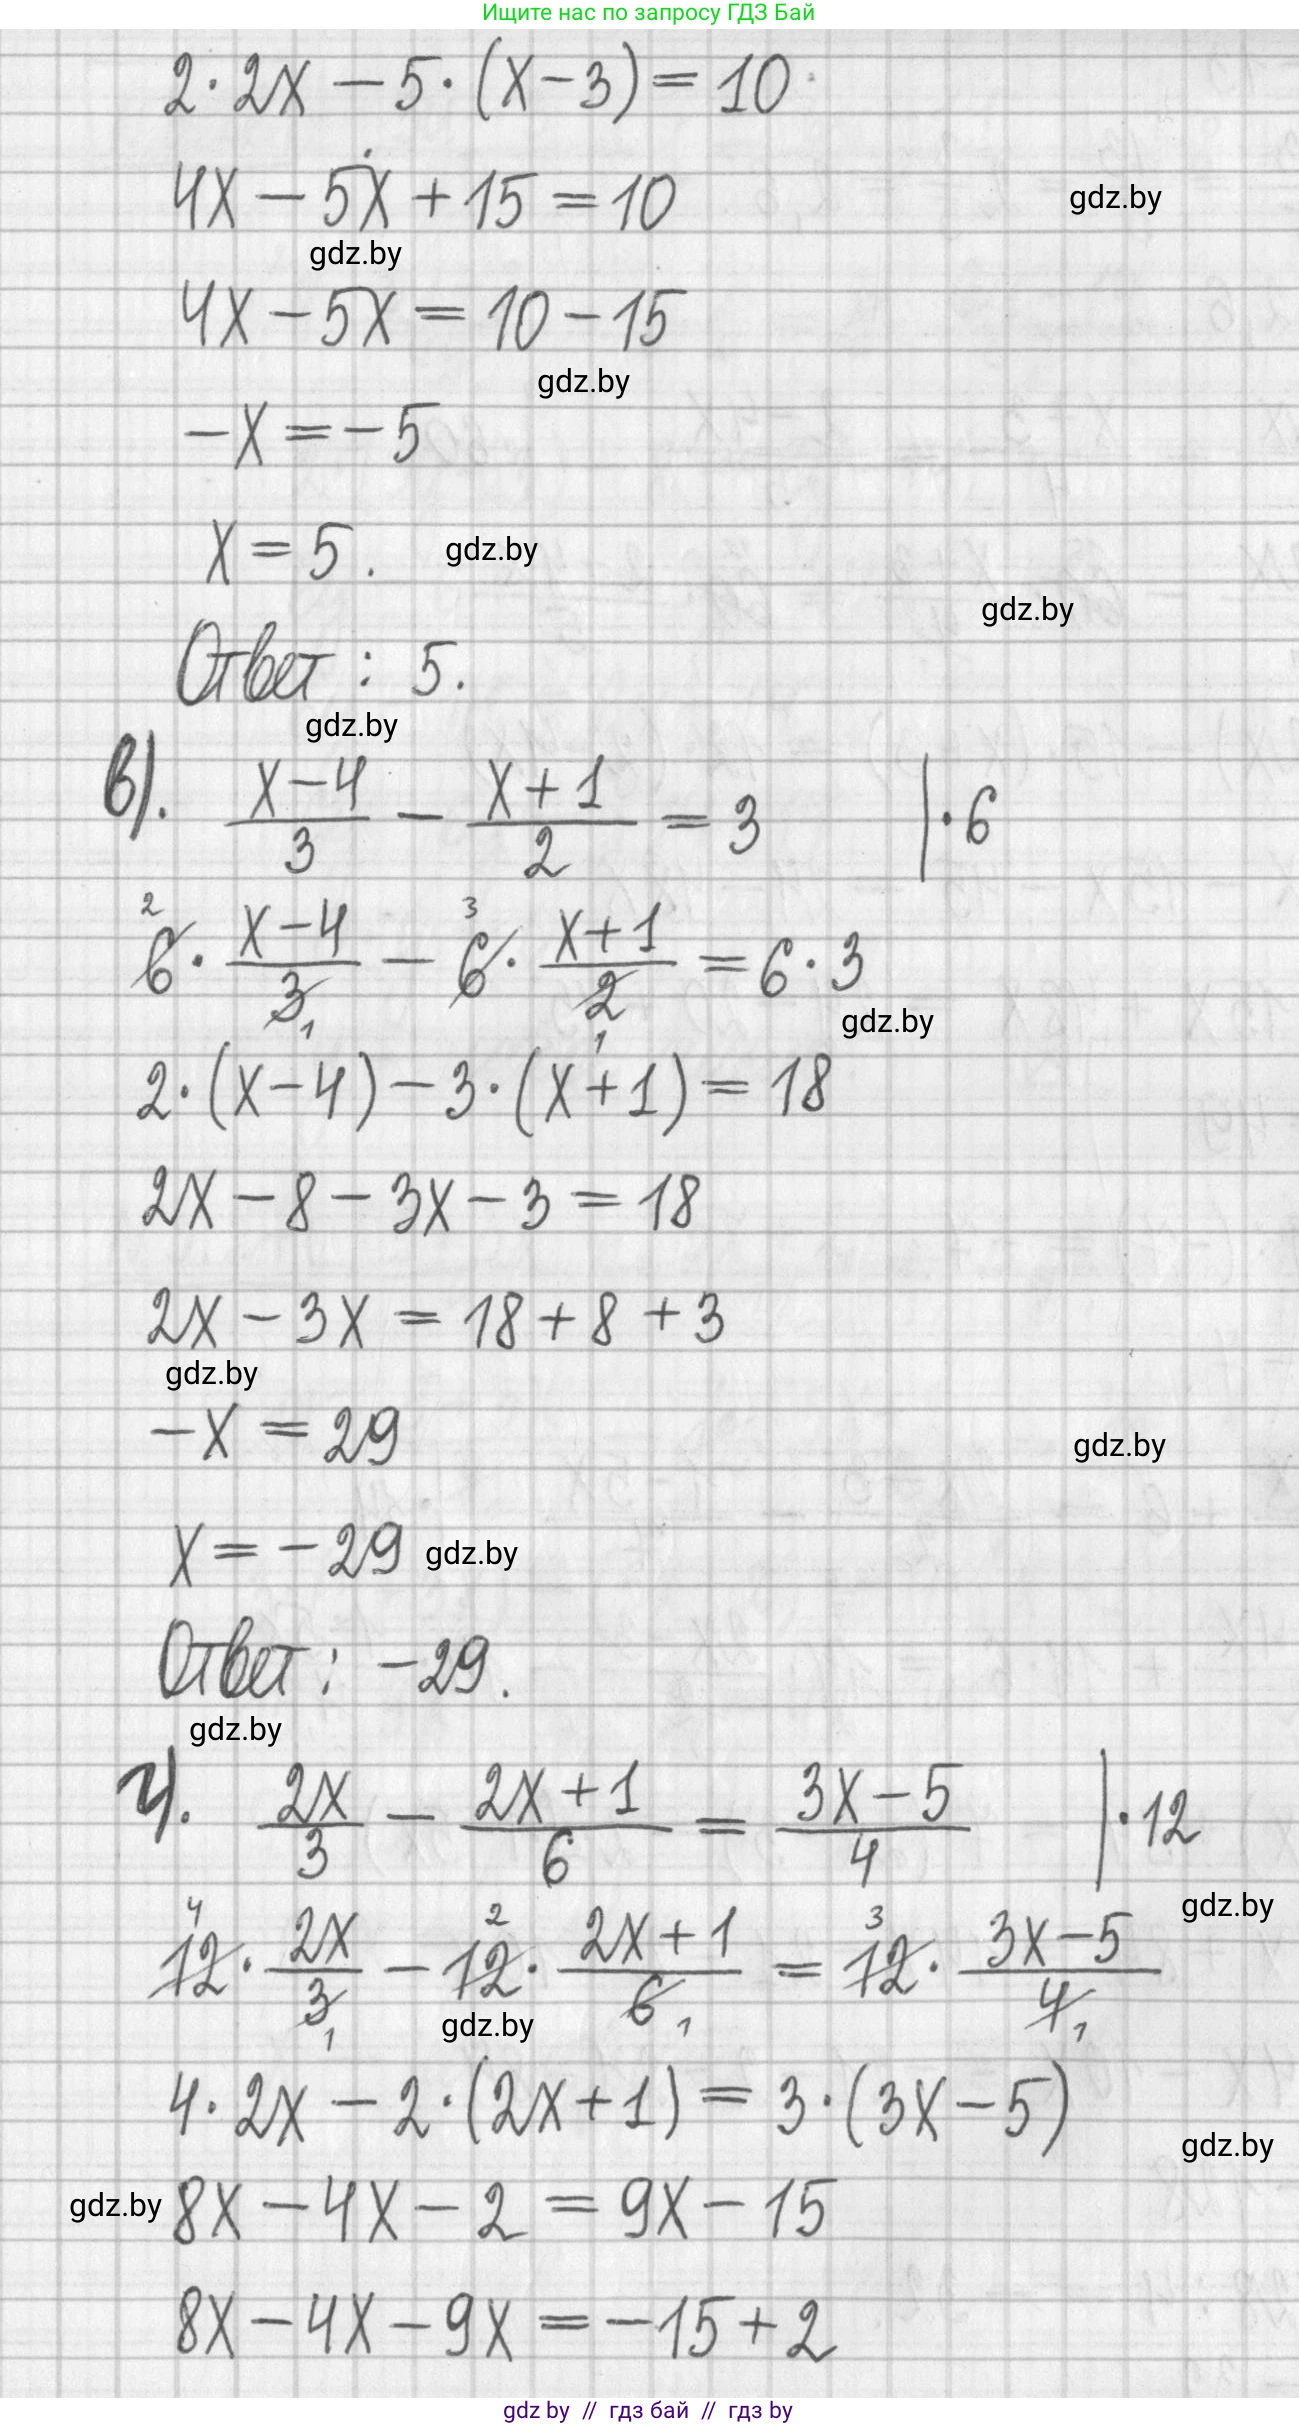 Ищите нас по запросу ГДЗ Бай
2·2x − 5·(x−3) = 10
4x − 5x + 15 = 10
gdz.by
gdz.by
4x − 5x = 10 − 15
gdz.by
−x = −5
x = 5.
gdz.by
gdz.by
Ответ: 5.
gdz.by
в). (x−4)/3 − (x+1)/2 = 3 | ·6
2 3
6 · (x−4)/3 − 6 · (x+1)/2 = 6·3
1 1
gdz.by
2·(x−4) − 3·(x+1) = 18
2x − 8 − 3x − 3 = 18
2x − 3x = 18 + 8 + 3
gdz.by
−x = 29
gdz.by
x = −29
gdz.by
Ответ: −29.
gdz.by
г). 2x/3 − (2x+1)/6 = (3x−5)/4 | ·12
gdz.by
4 2 3
12 · 2x/3 − 12 · (2x+1)/6 = 12 · (3x−5)/4
1 1 1
gdz.by
4·2x − 2·(2x+1) = 3·(3x−5)
gdz.by
gdz.by
8x − 4x − 2 = 9x − 15
8x − 4x − 9x = −15 + 2
gdz by // гдз бай // гдз by